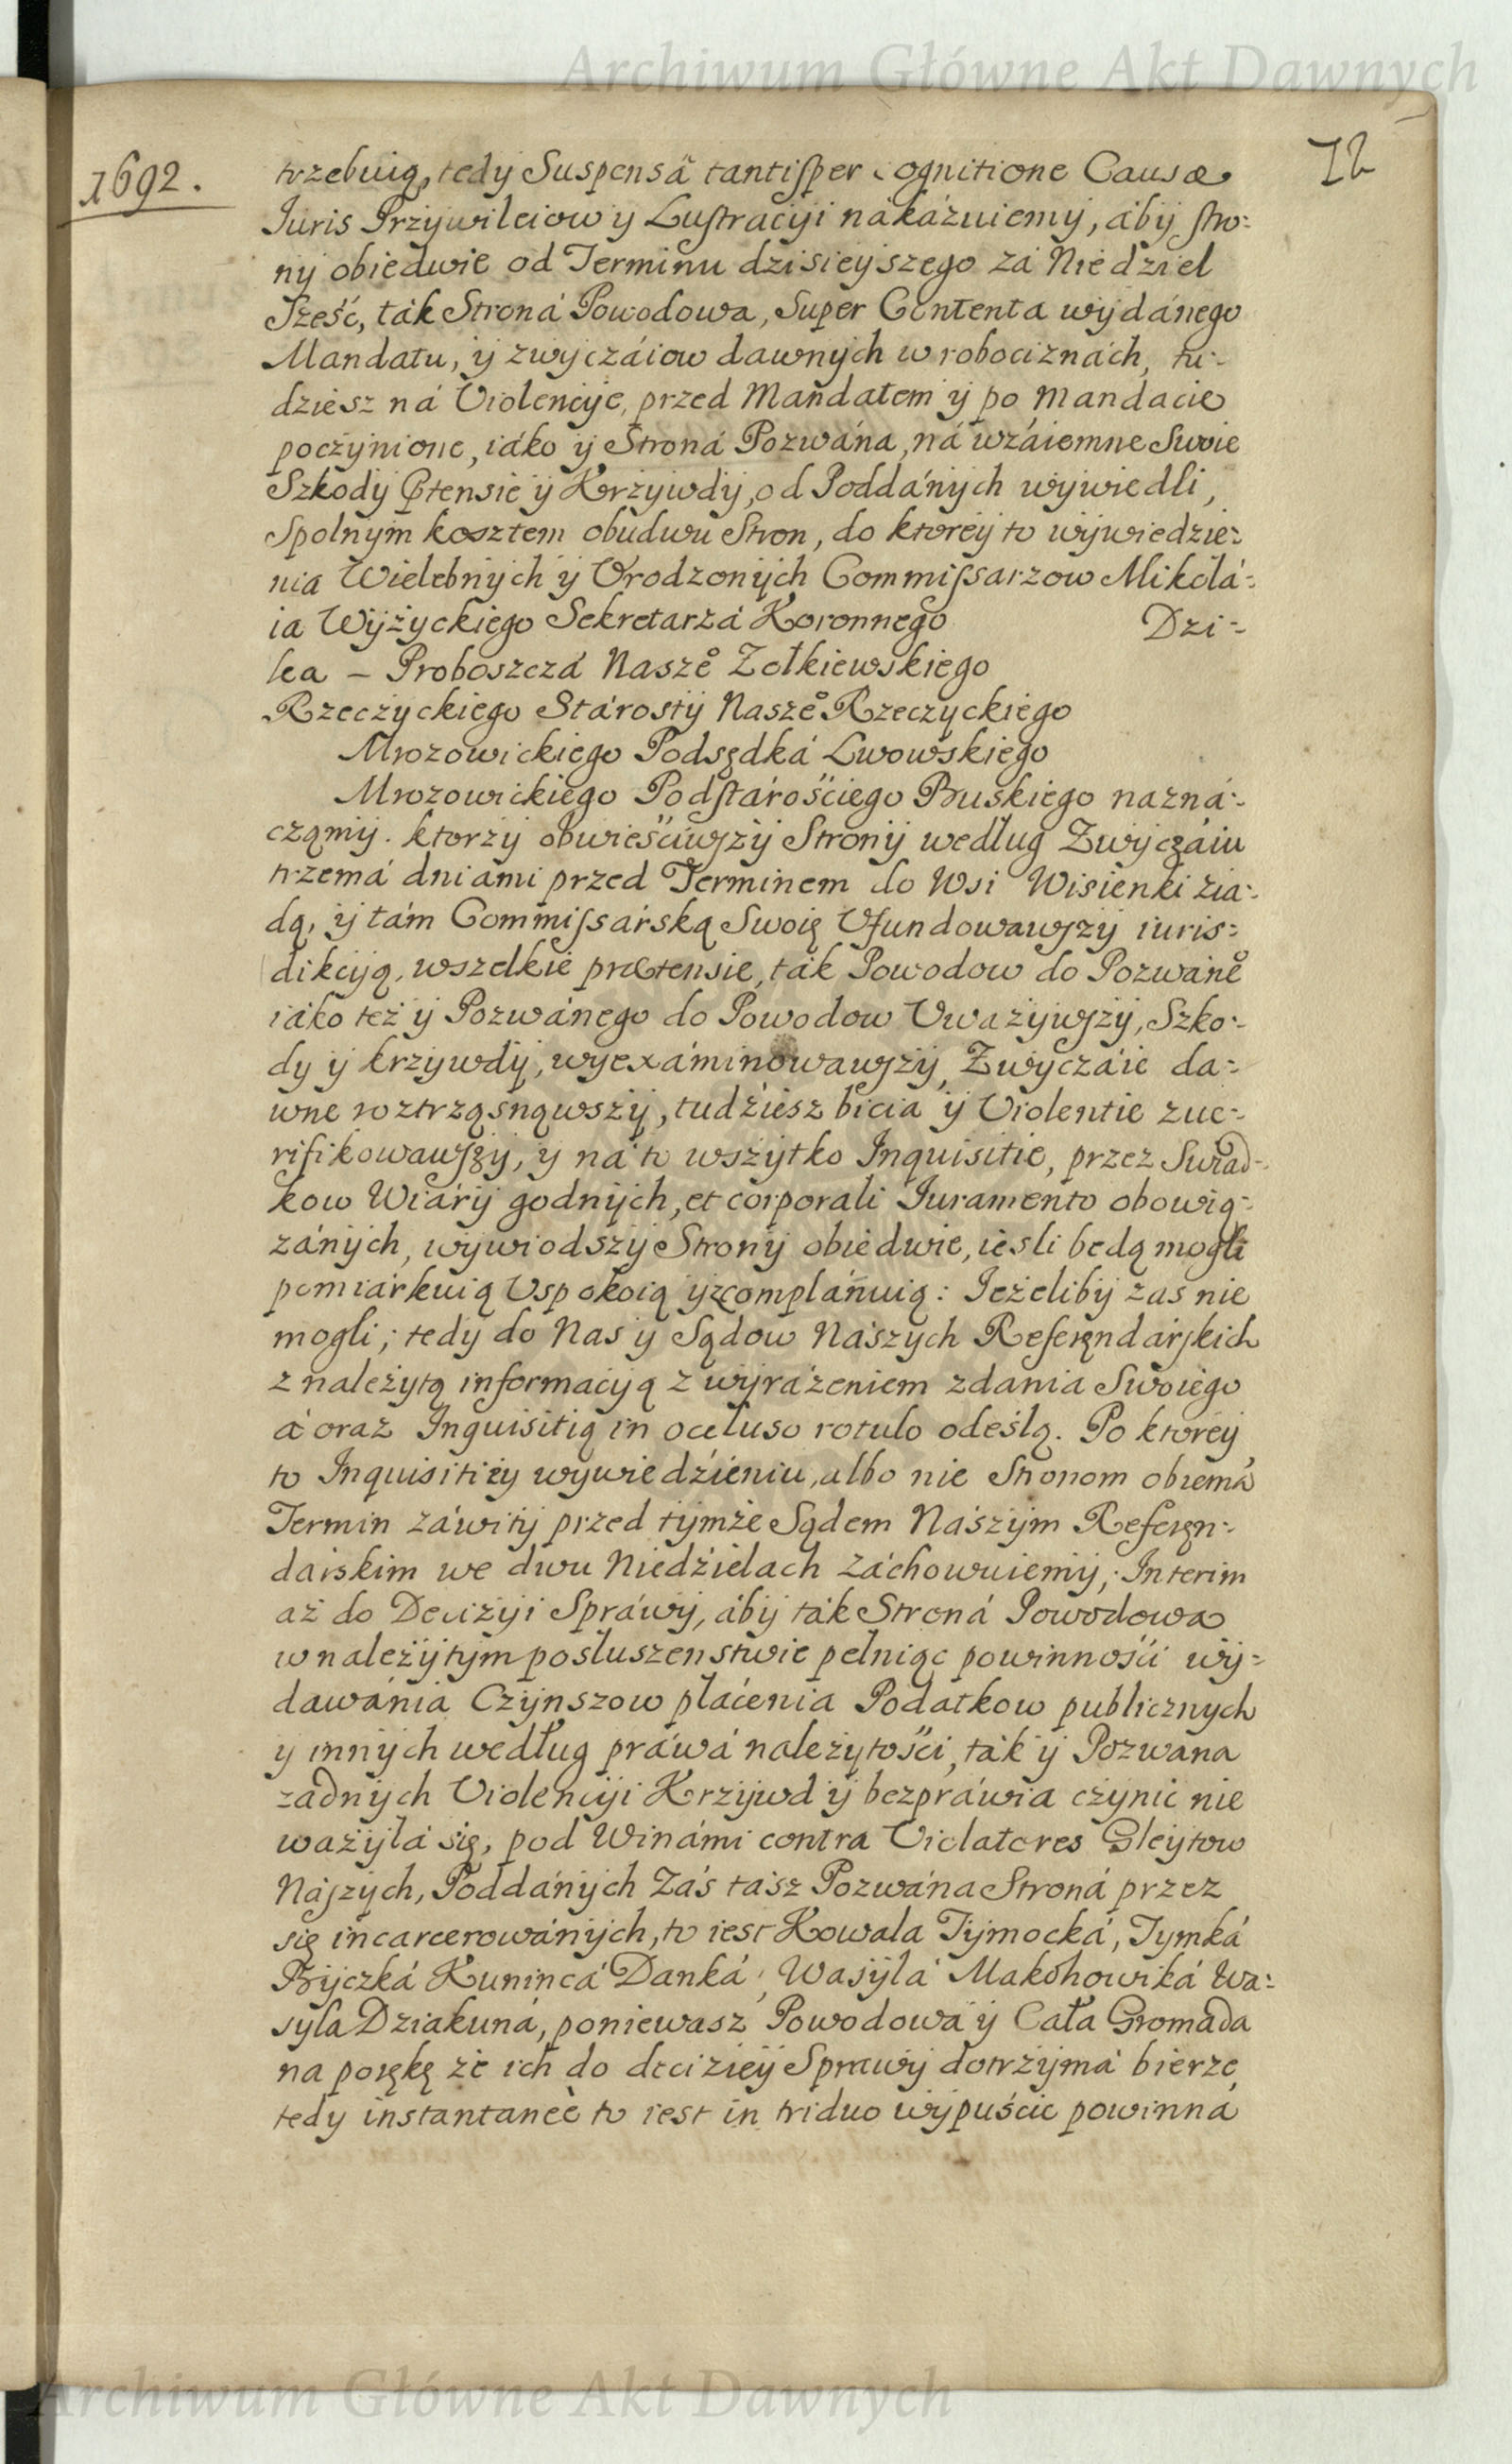 Archiwum Główne Akt Dawnych
1692.
72
trzebuią, tedy Suspensâ tantiſper cognitione Causæ
Iuris Przywileiow y Luſtracyi nákázuiemy, áby ſtro-
ny obiedwie od Terminu dzisieyszego zá Niedziel
Sześć, ták Stroná Powodowa, Super Contenta wydánego
Mandatu, y zwyczáiow dawnych w robociznách, tu-
dziesz ná Violencye, przed Mandatem y po Mandacie
poczynione, iáko y Stroná Pozwána, ná wzáiemne Swoie
Szkody Prtensie y Krzywdy, od Poddánych wywiedli,
Spolnym kosztem obudwu Stron, do ktorey to wywiedzie-
nia Wielebnych y Vrodzonych Commiſsarzow Mikołá-
ia Wyżyckiego Sekretarzá Koronnego Dzi-
lea – Proboszczá Naszeº Zołkiewskiego
Rzeczyckiego Stárosty Naszeº Rzeczyckiego
Mrozowickiego Podsędká Lwowskiego
Mrozowickiego Podſtárościego Buskiego názná-
cząmy. ktorzy obwieściwſzy Strony według Zwyczáiu
trzemá dniami przed Terminem do Wsi Wisienki zia-
dą, y tám Commiſsarską Swoię Vfundowawſzy iuris-
dikcyą, wszelkie prætensie, ták Powodow do Pozwáneº
iáko też y Pozwánego do Powodow Vważywſzy, Szko-
dy y krzywdy, wyexáminowawſzy, Zwyczáie da-
wne roztrząsnąwszy, tudziesz bicia y Violentie zue-
rifikowawſzy, y ná to wszytko Inquisitie, przez Swiad-
kow Wiáry godnych, et corporali Iuramento obowią-
zánych, wywiodszy Strony obiedwie, ieśli będą mogli
pomiárkuią Vspokoią y zcomplánuią: Ieżeliby zaś nie
mogli; tedy do Nas y Sądow Nászych Referęndárſkich
z należytą informacyą z wyráżeniem zdania Swoiego
á oraz Inquisitią in occluso rotulo odeślą. Po ktorey
to Inquisitiey wywiedzieniu, albo nie Stronom obiemá
Termin záwity przed tymże Sądem Nászym Referęn-
dárskim we dwu Niedzielach záchowuiemy, Interim
aż do Decizyi Spráwy, áby ták Stroná Powodowa
w należytym posłuszenstwie pełniąc powinności wy-
dawánia Czynszow płácenia Podatkow publicznych
y innych według práwá należytości, ták y Pozwana
żadnych Violencyi Krzywd y bezpráwia czynic nie
ważyłá się, pod Winámi contra Violatores Gleytow
Náſzych, Poddánych Záś tasz Pozwána Stroná przez
się incarcerowánych, to iest Kowala Tymocká, Tymká
Byczká Kunincá Danká, Wasylá Makohowiká Wa-
syla Dziakuná, poniewasz Powodowa y Cała Gromada
na porękę że ich do deciziey Sprawy dotrzymá bierze,
tedy instantaneè to iest in triduo wypuścic powinná
Archiwum Główne Akt Dawnych